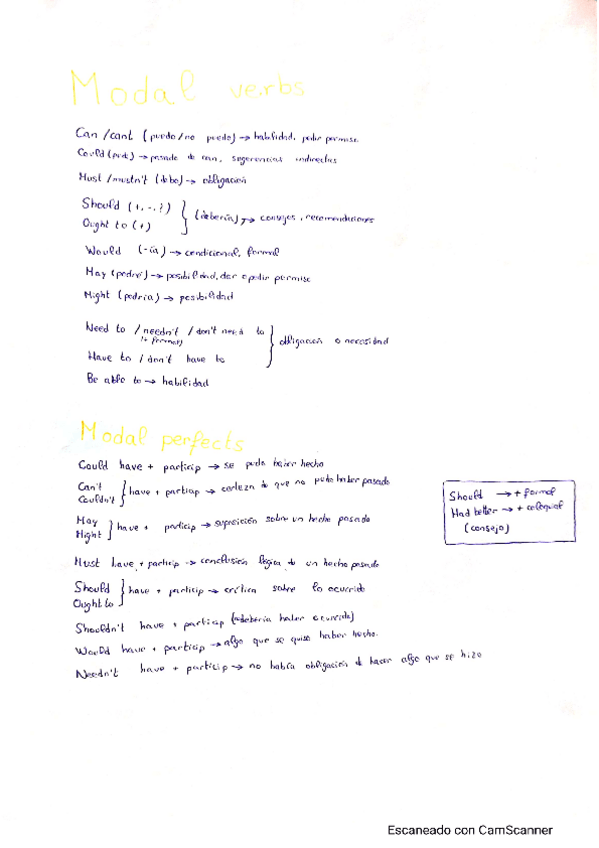 Modal verbs
Can /cant (puedo/no puedo) → habilidad, pedir permiso.
Could (pude) → pasado de can, sugerencias indirectas
Must /mustn't (debo) → obligación
Should (+,-,?)
Ought to (+)
(debería) → consejos, recomendaciones
Would (-ía) → condicional, formal
May (podré) → posibilidad, dar o pedir permiso
Might (podría) → posibilidad
Need to /needn't /don't need to
(+ formal)
Have to / don't have to
obligación o necesidad
Be able to → habilidad
Modal perfects
Could have + particip → se pudo haber hecho
Can't
Couldn't
have + particip → certeza de que no pudo haber pasado
May
Might
have + particip → suposición sobre un hecho pasado
Must have + particip → conclusión lógica de un hecho pasado
Should
Ought to
have + particip → crítica sobre lo ocurrido
Shouldn't have + particip (debería haber ocurrido)
Would have + particip → algo que se quiso haber hecho.
Needn't have + particip → no había obligación de hacer algo que se hizo
Should → + formal
Had better → + coloquial
(consejo)
Escaneado con CamScanner